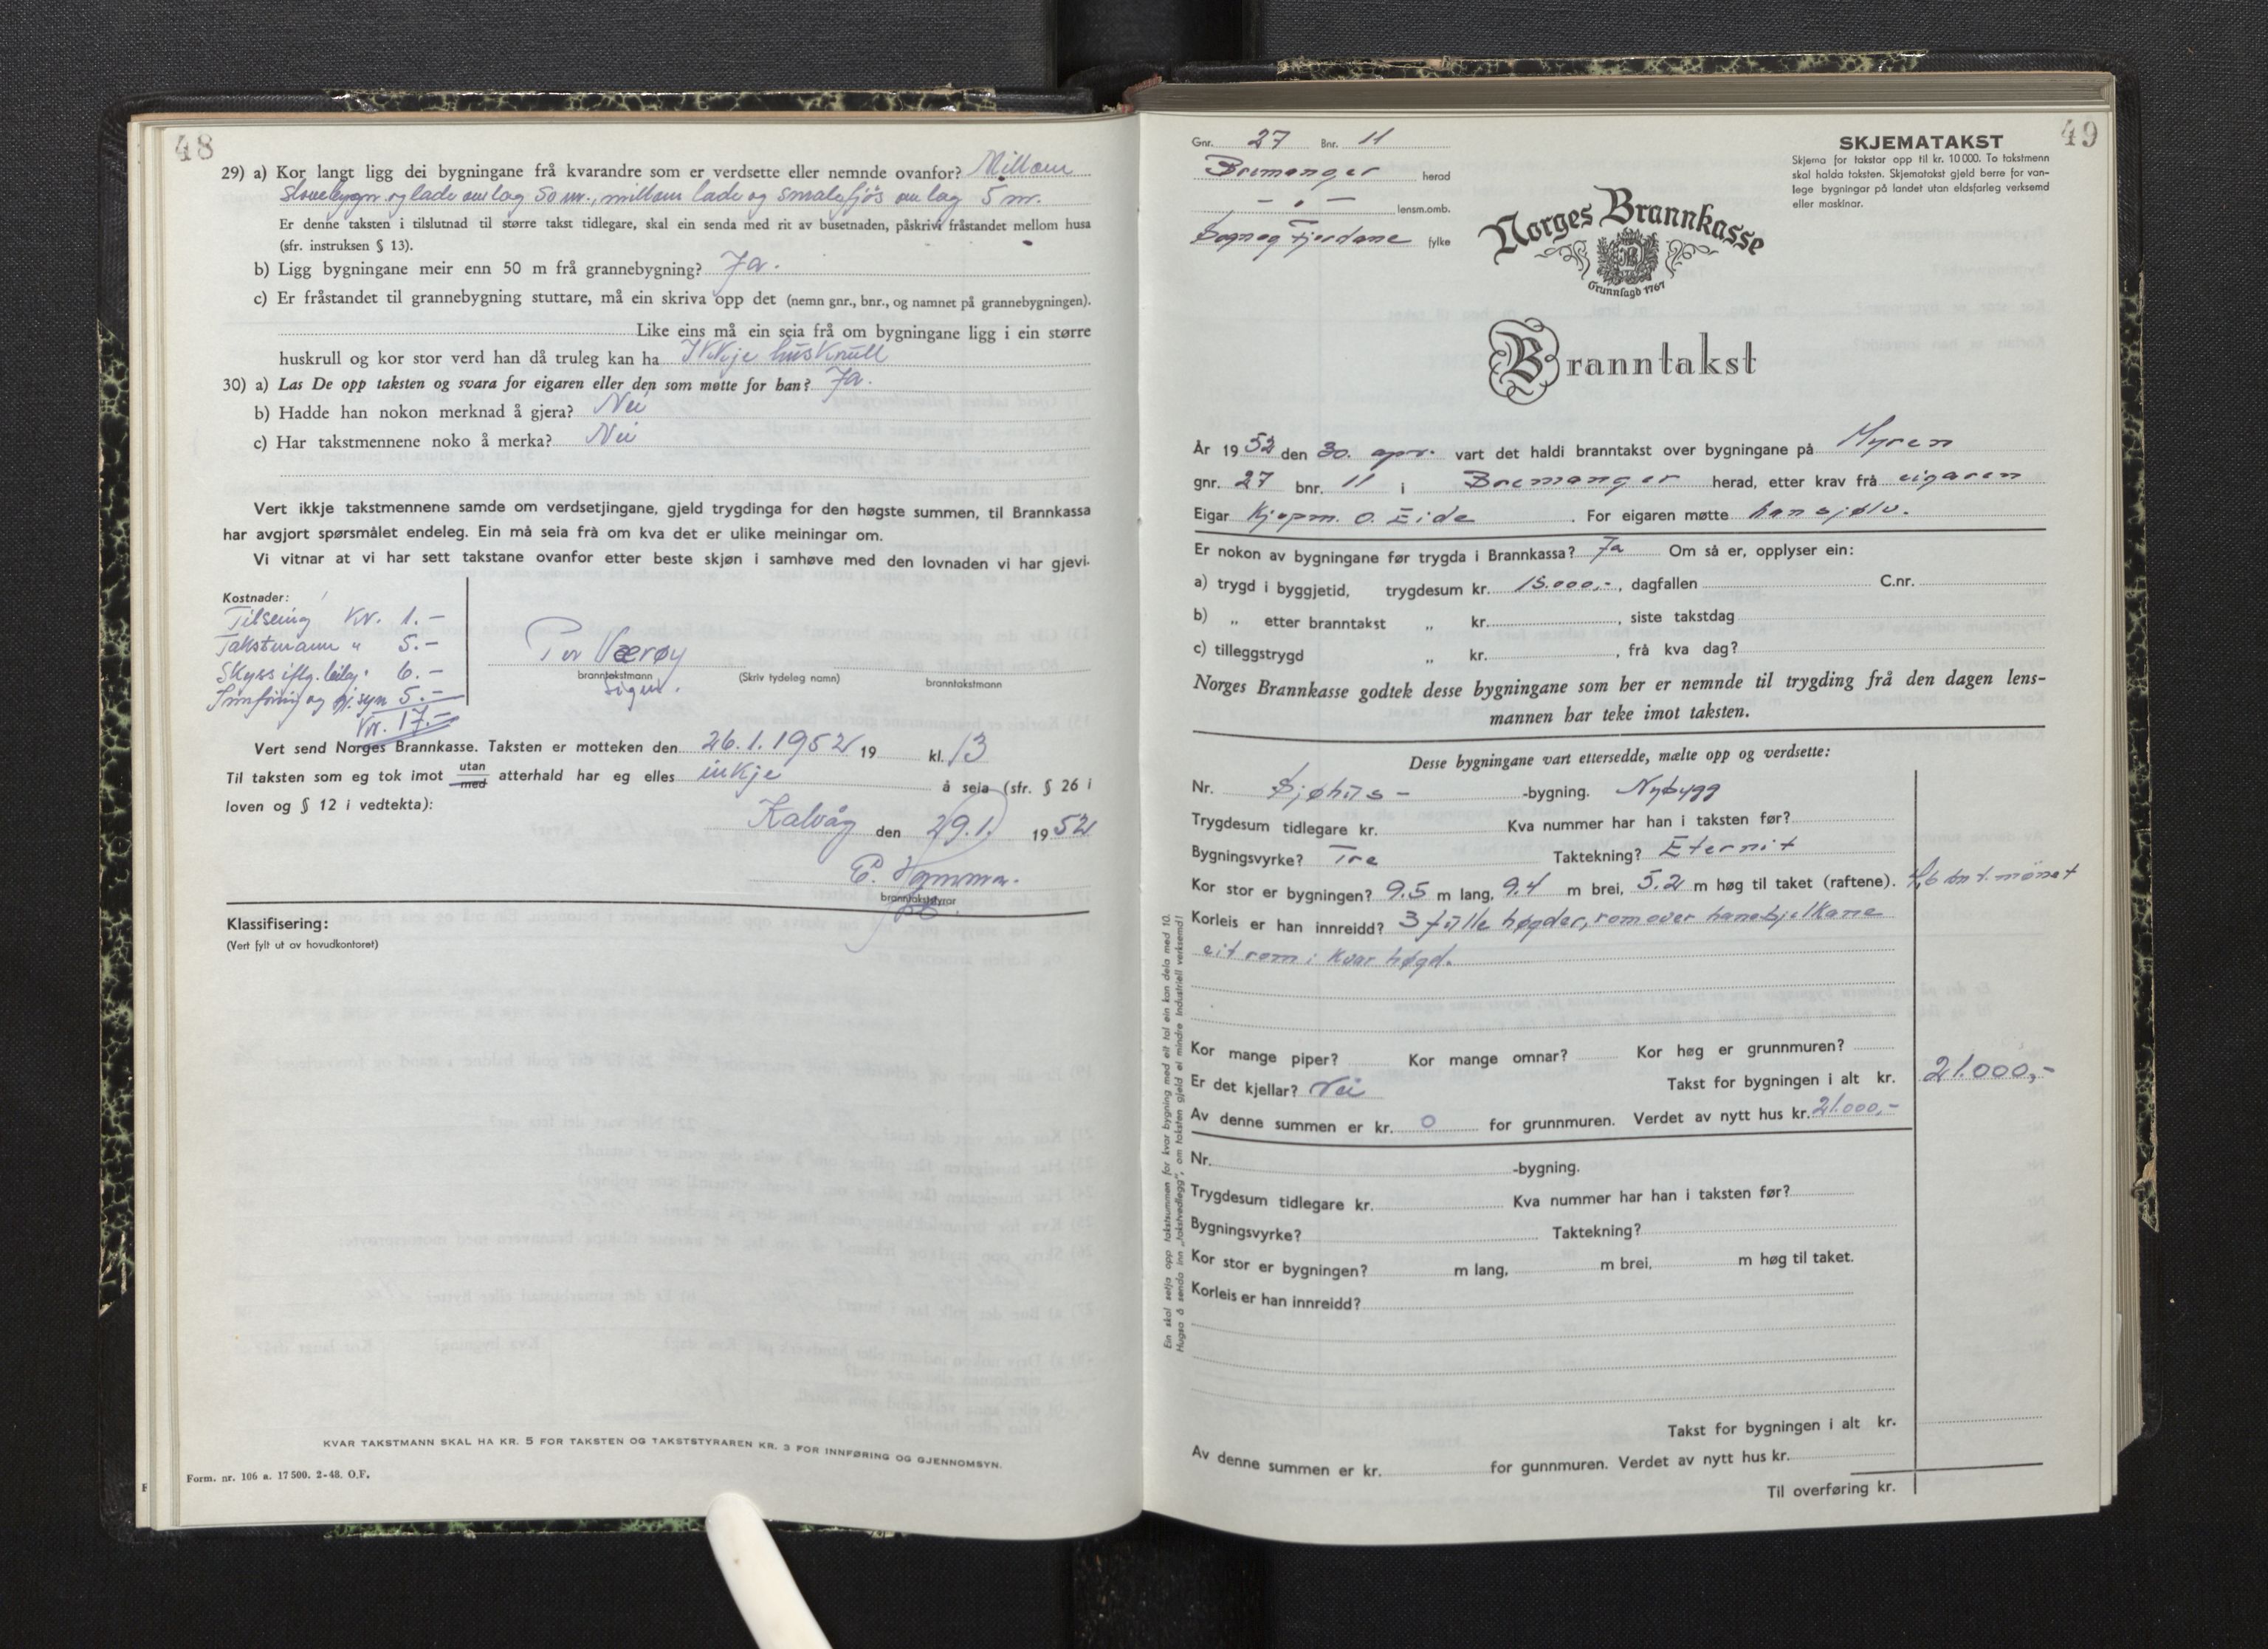 48
29) a) Kor langt ligg dei bygningane frå kvarandre som er verdsette eller nemnde ovanfor? Millom
Stovebygn. og lade om lag 50 m., millom lade og smalefjøs om lag 5 m.
Er denne taksten i tilslutnad til større takst tidlegare, skal ein senda med rit av busetnaden, påskrivi fråstandet mellom husa
(sfr. instruksen § 13).
b) Ligg bygningane meir enn 50 m frå grannebygning? Ja.
c) Er fråstandet til grannebygning stuttare, må ein skriva opp det (nemn gnr., bnr., og namnet på grannebygningen).
Like eins må ein seia frå om bygningane ligg i ein større
huskrull og kor stor verd han då truleg kan ha Ikkje huskrull
30) a) Las De opp taksten og svara for eigaren eller den som møtte for han? Ja.
b) Hadde han nokon merknad å gjera? Nei
c) Har takstmennene noko å merka? Nei
Vert ikkje takstmennene samde om verdsetjingane, gjeld trygdinga for den høgste summen, til Brannkassa
har avgjort spørsmålet endeleg. Ein må seia frå om kva det er ulike meiningar om.
Vi vitnar at vi har sett takstane ovanfor etter beste skjøn i samhøve med den lovnaden vi har gjevi.
Kostnader:
Tilseiing Kr. 1.-
Takstmann " 5.-
Skyss iflg. bilag. 6.-
Innføring og gj.syn 5.-
Kr. 17.-
Per Værøy
branntakstmann
(Skriv tydeleg namn)
branntakstmann
sign.
Vert send Norges Brannkasse. Taksten er motteken den 26.1.1952 19 kl. 13
Til taksten som eg tok imot utan med atterhald har eg elles inkje å seia (sfr. § 26 i
loven og § 12 i vedtekta):
Kalvåg den 29.1. 1952
branntakststyrar
Klassifisering:
(Vert fylt ut av hovudkontoret)
KVAR TAKSTMANN SKAL HA KR. 5 FOR TAKSTEN OG TAKSTSTYRAREN KR. 3 FOR INNFØRING OG GJENNOMSYN.
Form. nr. 106 a. 17 500. 2-48. O.F.
49
Gnr. 27 Bnr. 11
Bremanger herad
- " - lensm.omb.
Sogn og Fjordane fylke
SKJEMATAKST
Skjema for takstar opp til kr. 10 000. To takstmenn
skal halda taksten. Skjematakst gjeld berre for van-
lege bygningar på landet utan eldsfarleg verksemd
eller maskinar.
Norges Brannkasse
Grunnlagd 1767
Branntakst
År 1952 den 30. apr. vart det haldi branntakst over bygningane på Myren
gnr. 27 bnr. 11 i Bremanger herad, etter krav frå eigaren
Eigar Kjøpm. O. Eide. For eigaren møtte han sjølv.
Er nokon av bygningane før trygda i Brannkassa? Ja Om så er, opplyser ein:
a) trygd i byggjetid, trygdesum kr. 15.000,-, dagfallen C.nr.
b) „ etter branntakst „ kr. , siste takstdag
c) tilleggstrygd „ kr. , frå kva dag?
Norges Brannkasse godtek desse bygningane som her er nemnde til trygding frå den dagen lens-
mannen har teke imot taksten.
Desse bygningane vart ettersedde, mælte opp og verdsette:
Nr. Sjøhus- -bygning. Nybygg
Trygdesum tidlegare kr. Kva nummer har han i taksten før?
Bygningsvyrke? Tre Taktekning? Eternit
Kor stor er bygningen? 9.5 m lang, 9.4 m brei, 5.2 m høg til taket (raftene). m t. mønet
Korleis er han innreidd? 3 fulle høgder, rom over hanebjelkane
eit rom i kvar høgd.
Kor mange piper? Kor mange omnar? Kor høg er grunnmuren?
Er det kjellar? Nei Takst for bygningen i alt kr. 21.000,-
Av denne summen er kr. 0 for grunnmuren. Verdet av nytt hus kr. 21.000,-
Nr. -bygning.
Trygdesum tidlegare kr. Kva nummer har han i taksten før?
Bygningsvyrke? Taktekning?
Kor stor er bygningen? m lang, m brei, m høg til taket.
Korleis er han innreidd?
Takst for bygningen i alt kr.
Av denne summen er kr. for gunnmuren. Verdet av nytt hus kr.
Til overføring kr.
Ein skal setja opp takstsummen for kvar bygning med eit tal ein kan dela med 10.
Hugsa å senda inn „takstvedlegg”, om taksten gjeld ei mindre industriell verksemd!